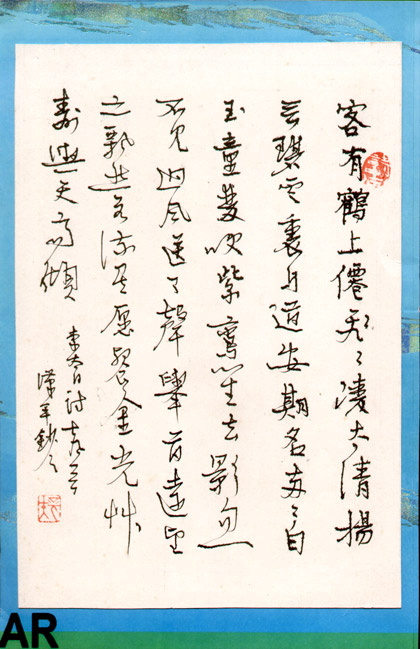 客有鶴上僊飛〻凌太清揚
言碧雲裏自道安期名兩〻白
玉童雙吹紫鸞笙去影忽
不見迴風送天聲舉首遠望
之飄然若流星愿餐金光艸
壽與天齊傾
李太白詩
AR